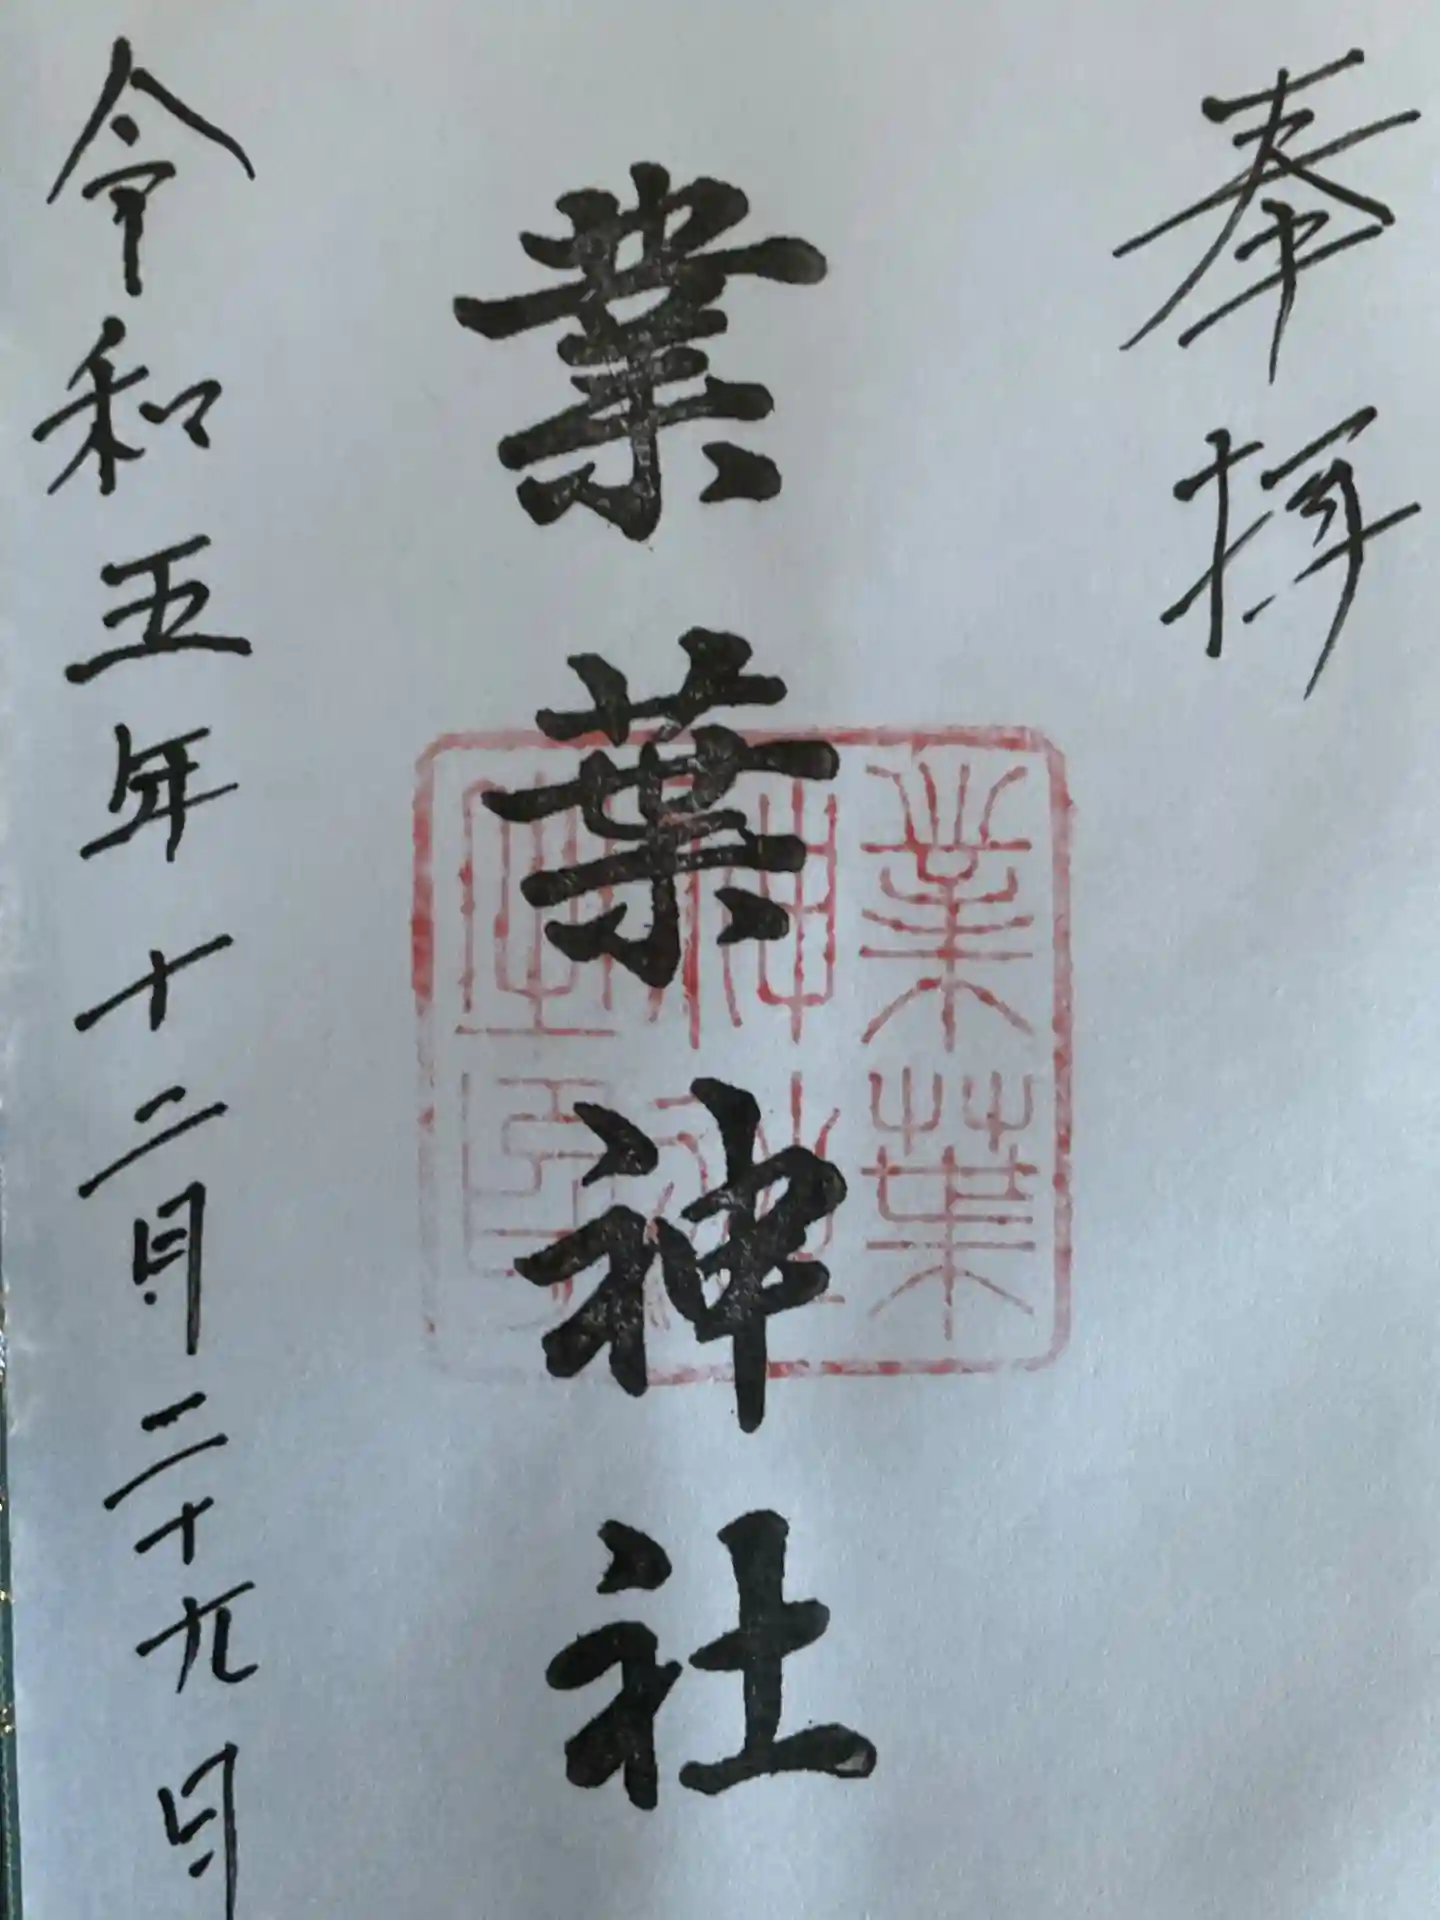 奉拝
業葉神社
業葉
神社
之印
令和五年十二月二十九日